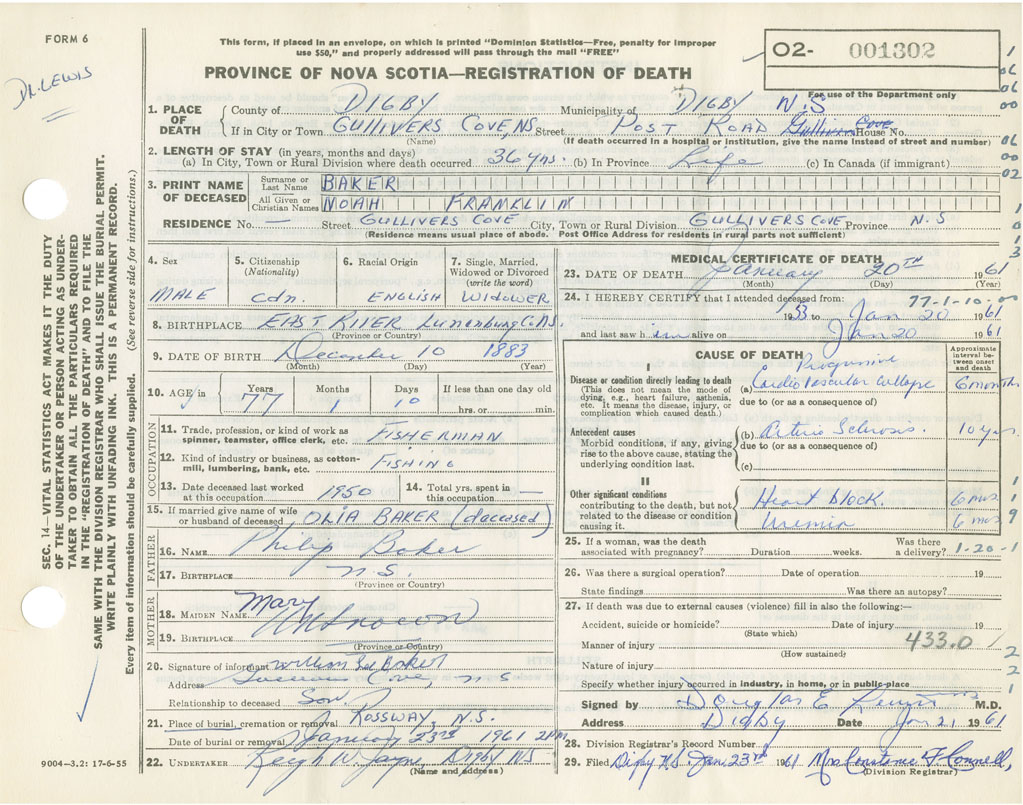 FORM 6
This form, if placed in an envelope, on which is printed "Dominion Statistics—Free, penalty for improper
use $50," and properly addressed will pass through the mail "FREE"
O2- 001302
For use of the Department only
DR. LEWIS
PROVINCE OF NOVA SCOTIA—REGISTRATION OF DEATH
1. PLACE OF DEATH County of DIGBY Municipality of DIGBY N.S
If in City or Town GULLIVERS COVE, NS Street POST ROAD Gullivers Cove House No.
(Name) (If death occurred in a hospital or institution, give the name instead of street and number)
2. LENGTH OF STAY (in years, months and days)
(a) In City, Town or Rural Division where death occurred 36 yrs. (b) In Province Life (c) In Canada (if immigrant)
3. PRINT NAME OF DECEASED Surname or Last Name BAKER
All Given or Christian Names NOAH FRANKLIN
RESIDENCE No. — Street GULLIVERS COVE City, Town or Rural Division GULLIVERS COVE Province N.S
(Residence means usual place of abode. Post Office Address for residents in rural parts not sufficient)
SEC. 14—VITAL STATISTICS ACT MAKES IT THE DUTY
OF THE UNDERTAKER OR PERSON ACTING AS UNDER-
TAKER TO OBTAIN ALL THE PARTICULARS REQUIRED
IN THE "REGISTRATION OF DEATH" AND TO FILE THE
SAME WITH THE DIVISION REGISTRAR WHO SHALL ISSUE THE BURIAL PERMIT.
WRITE PLAINLY WITH UNFADING INK. THIS IS A PERMANENT RECORD.
Every item of information should be carefully supplied. (See reverse side for instructions.)
4. Sex MALE
5. Citizenship (Nationality) Cdn.
6. Racial Origin ENGLISH
7. Single, Married, Widowed or Divorced (write the word) WIDOWER
8. BIRTHPLACE EAST RIVER Lunenburg Co. NS.
(Province or Country)
9. DATE OF BIRTH December 10 1883
(Month) (Day) (Year)
10. AGE in Years 77 Months 1 Days 10 If less than one day old hrs. or min.
OCCUPATION
11. Trade, profession, or kind of work as spinner, teamster, office clerk, etc. FISHERMAN
12. Kind of industry or business, as cotton-mill, lumbering, bank, etc. FISHING
13. Date deceased last worked at this occupation 1950
14. Total yrs. spent in this occupation —
15. If married give name of wife or husband of deceased OLIA BAKER (deceased)
FATHER
16. NAME Philip Baker
17. BIRTHPLACE N.S.
(Province or Country)
MOTHER
18. MAIDEN NAME Mary Unknown
19. BIRTHPLACE
(Province or Country)
20. Signature of informant William Baker
Address Cove, N S
Relationship to deceased Son.
21. Place of burial, cremation or removal ROSSWAY, N.S.
Date of burial or removal January 23rd 1961 2 PM
22. UNDERTAKER W. Jayne, Digby NS
(Name and address)
9004—3.2: 17-6-55
MEDICAL CERTIFICATE OF DEATH
23. DATE OF DEATH January 20TH 1961
(Month) (Day) (Year)
77-1-10-00
24. I HEREBY CERTIFY that I attended deceased from:
1953 to Jan 20 1961
and last saw him alive on Jan 20 1961
CAUSE OF DEATH
Approximate interval between onset and death
I
Disease or condition directly leading to death
(This does not mean the mode of dying, e.g., heart failure, asthenia, etc. It means the disease, injury, or complication which caused death.)
(a) Progressive Cardio Vascular Collapse 6 months
due to (or as a consequence of)
Antecedent causes
Morbid conditions, if any, giving rise to the above cause, stating the underlying condition last.
(b) Arterio Sclerosis 10 yrs.
due to (or as a consequence of)
(c)
II
Other significant conditions contributing to the death, but not related to the disease or condition causing it.
Heart block 6 mos
Uremia 6 mos
25. If a woman, was the death associated with pregnancy? Duration weeks. Was there a delivery? 1-20-1
26. Was there a surgical operation? Date of operation 19
State findings Was there an autopsy?
27. If death was due to external causes (violence) fill in also the following:—
Accident, suicide or homicide? Date of injury 19
(State which)
Manner of injury 433.0
(How sustained)
Nature of injury
Specify whether injury occurred in industry, in home, or in public place
Signed by Douglas E Lewis M.D.
Address Digby Date Jan 21 1961
28. Division Registrar's Record Number
29. Filed Digby N.S. Jan. 23rd 1961 Mrs Constance F Connell,
(Division Registrar)